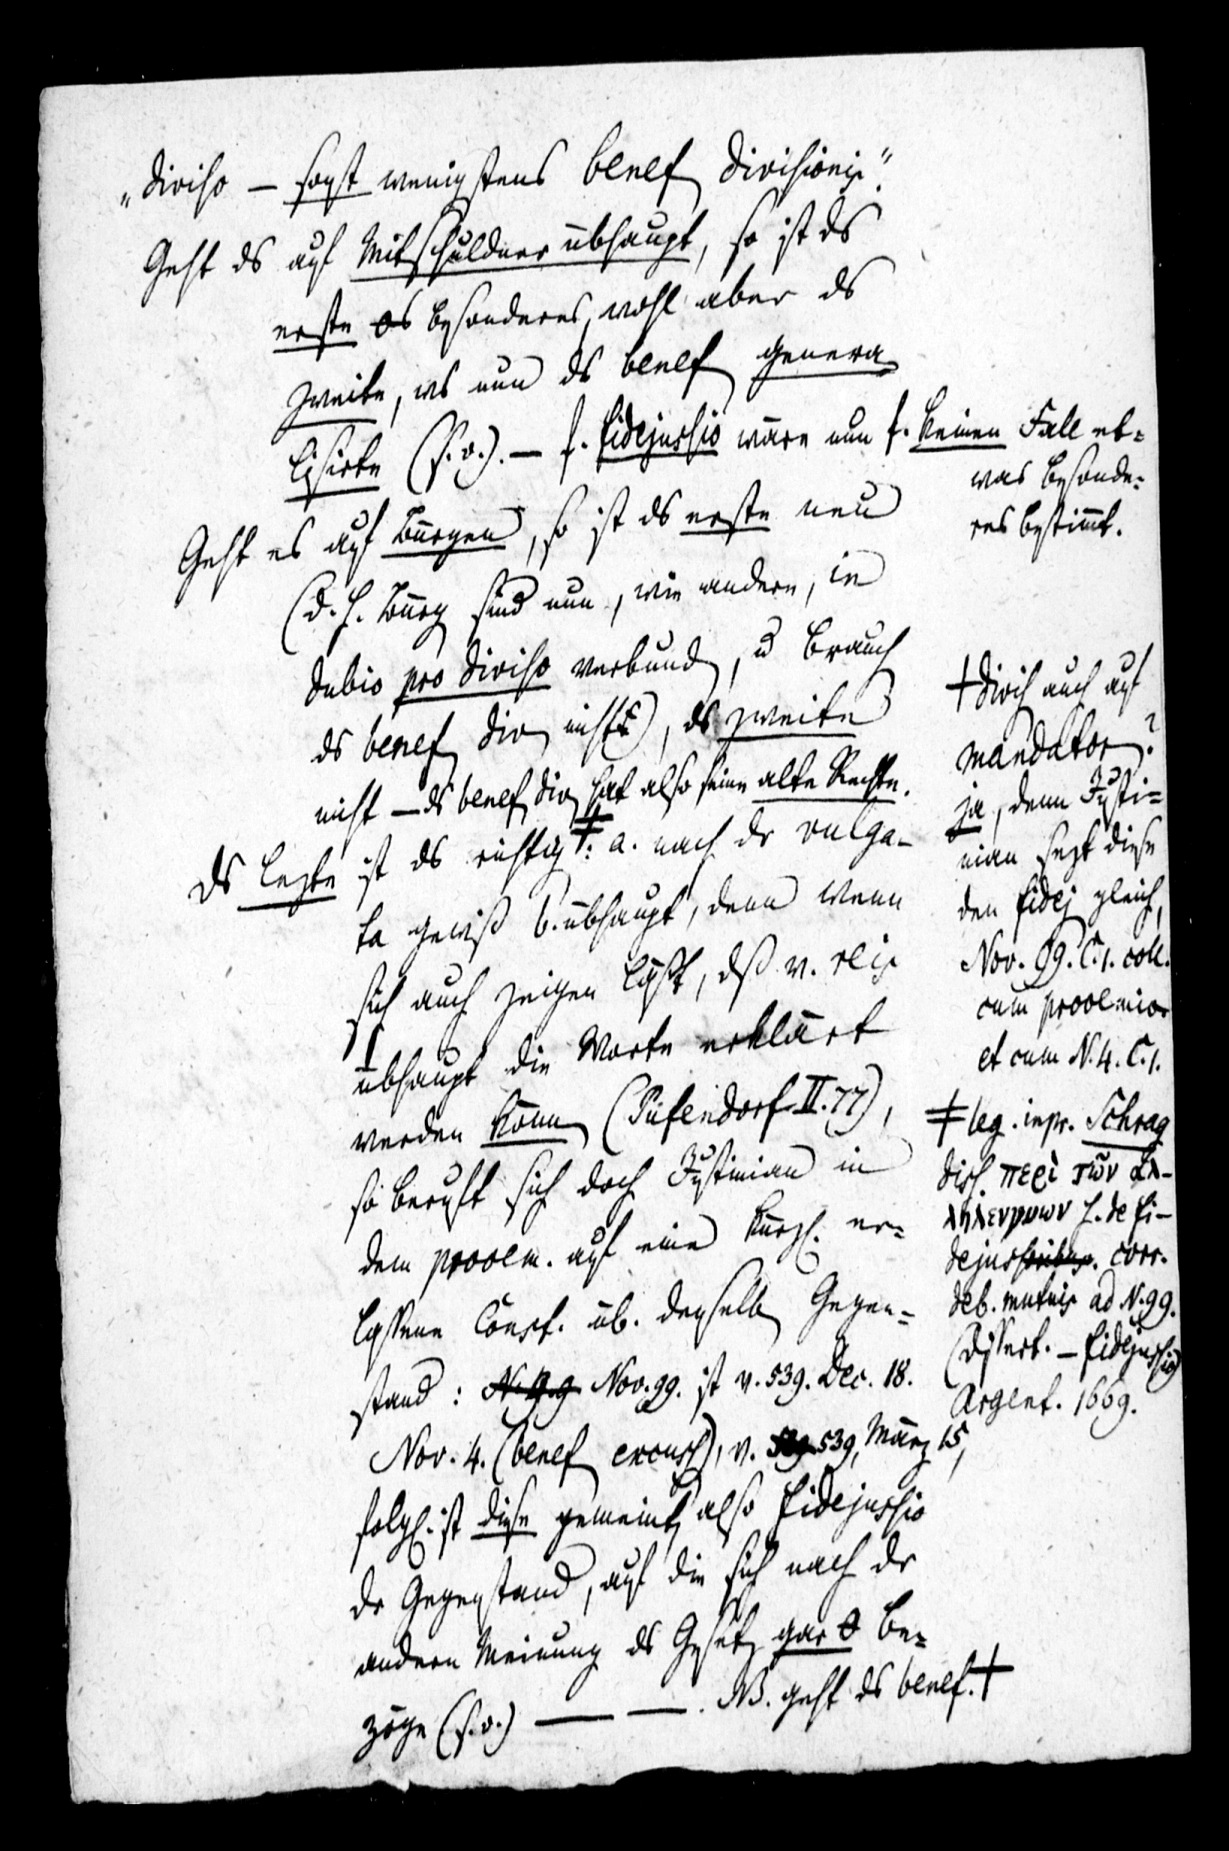 „diviso — sonst wenigstens benef divisionis".
Geht ds auf Mitschuldner übhaupt, so ist ds
erste 0s besonderes, wohl aber ds
zweite, ws nun ds benef genera
lisirte (s. o.). — f. fidejussio wäre nun f. keinen Fall et=
was besonde=
res bestimmt.
Geht es auf Bürgen, so ist ds erste neu
(d. h. Bürg sind nun, wie andere, in
dubio pro diviso verbund, u brauch
ds benef div nicht), ds zweite
nicht — ds benef div hat also seine alte Rechte.
Ds lezte ist ds richtig ‡: a. nach dr vulga-
ta gewiß b. übhaupt, denn wenn
sich auch zeigen läßt, dß v. reis
übhaupt die Worte erklärt
werden könn (Pufendorf II. 77),
so beruft sich doch Justinian in
dem prooem. auf eine kurzl. er=
lassene Const. üb. denselb Gegen=
stand: N. 99 Nov. 99. ist v. 539. Dec. 18.
Nov. 4. (benef excuss), v. 539, März 15,
folgl. ist diese gemeint, also fidejussio
dr Gegenstand, auf die sich nach dr
andern Meinung ds Gesetz gar 0 be=
zöge (s. o.) — — . NB. geht ds benef. †
† divis auch auf
mandator?
ja, denn Justi=
nian sezt diese
den fidej gleich,
Nov. 99. C. 1. coll.
cum prooemio
et cum N. 4. C. 1.
‡ leg. inpr. Schrag
diss. περὶ τῶν ἀλ-
ληλεγγύων s. de fi-
dejussoribus. corr.
deb. mutuis ad N. 99.
(Dissert. — fidejussio
Argent. 1669.